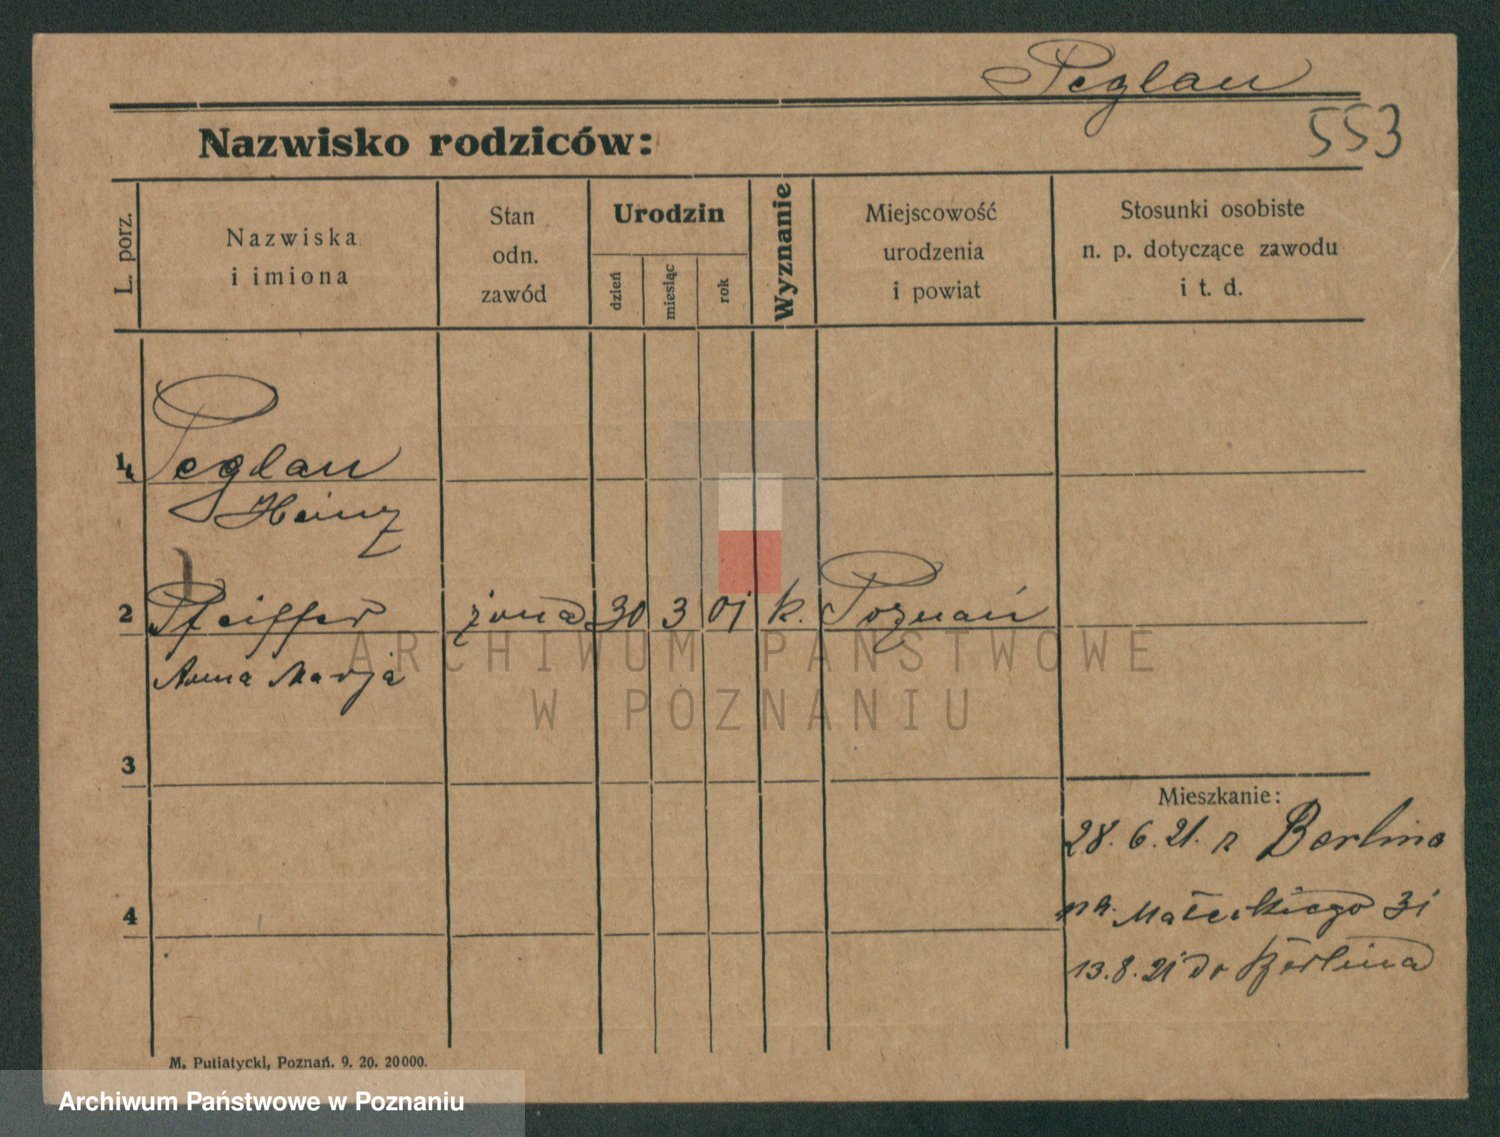 Peglau
553
Nazwisko rodziców:
L. porz.
Nazwiska
i imiona
Stan
odn.
zawód
Urodzin
dzień
miesiąc
rok
Wyznanie
Miejscowość
urodzenia
i powiat
Stosunki osobiste
n. p. dotyczące zawodu
i t. d.
1
Peglau
Heinz
2 Pfeiffer żona 30 3 01 k. Poznań
Anna Marja
ARCHIWUM PAŃSTWOWE
W POZNANIU
3
Mieszkanie:
28. 6. 21. z Berlina
Małeckiego 31
4
13. 8. 21 do Berlina
M. Putiatycki, Poznań. 9. 20. 20000.
Archiwum Państwowe w Poznaniu